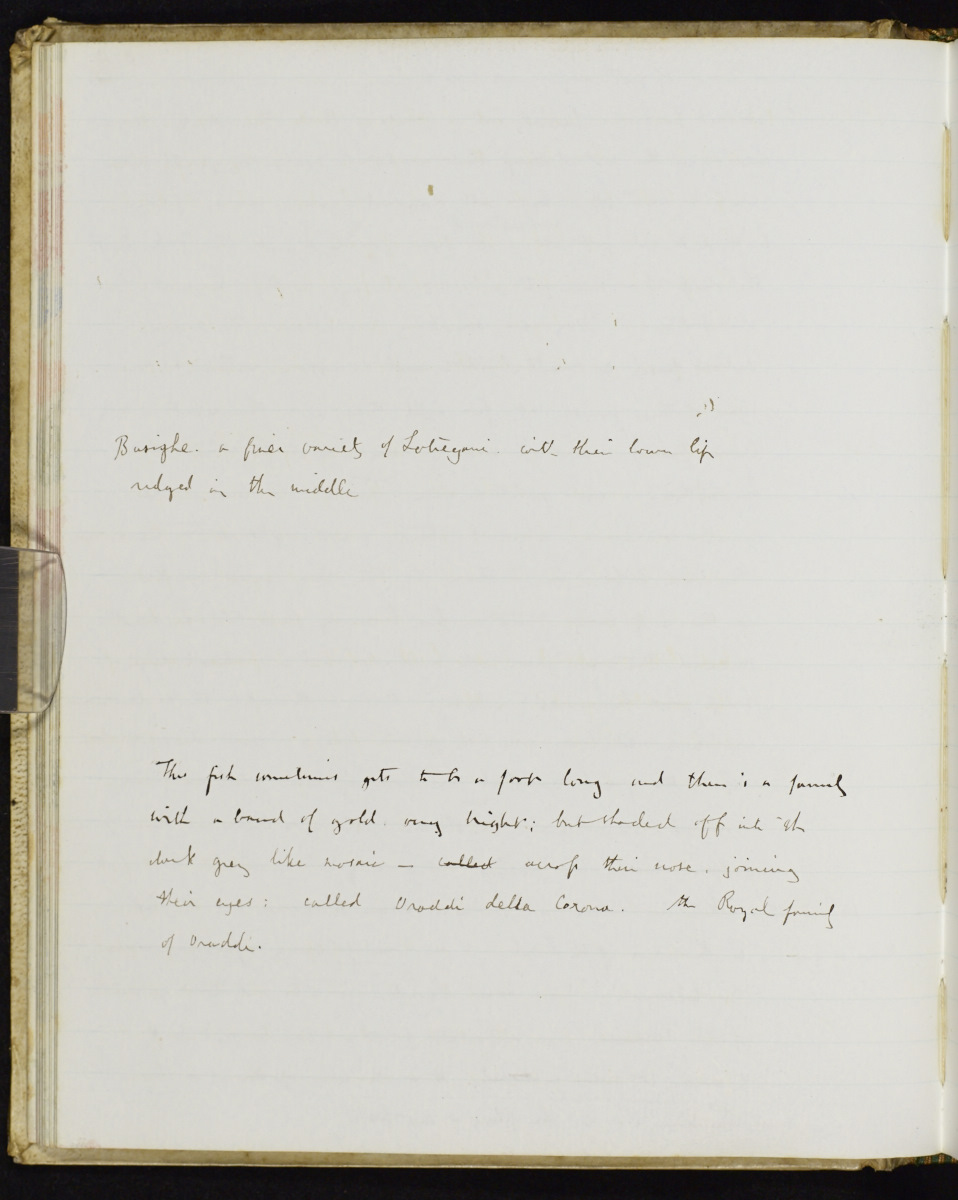 Busighe. a finer variety of Lotregani. with their lower lip
ridged in the middle
This fish sometimes gets to be a foot long and there is a family
with a band of gold. very bright; but shaded off into the
dark grey like mosaic — called across their nose. joining
their eyes: called Oraddi della Corona. the Royal family
of Oraddi.